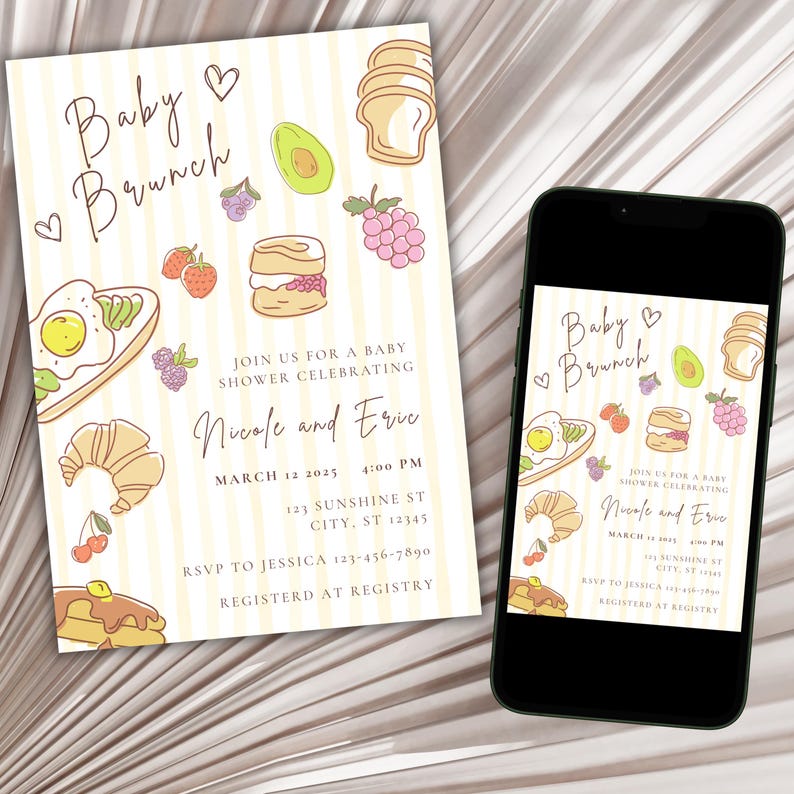 Baby
Brunch
JOIN US FOR A BABY
SHOWER CELEBRATING
Nicole and Eric
MARCH 12 2025 4:00 PM
123 SUNSHINE ST
CITY, ST 12345
RSVP TO JESSICA 123-456-7890
REGISTERD AT REGISTRY
Baby
Brunch
JOIN US FOR A BABY
SHOWER CELEBRATING
Nicole and Eric
MARCH 12 2025 4:00 PM
123 SUNSHINE ST
CITY, ST 12345
RSVP TO JESSICA 123-456-7890
REGISTERD AT REGISTRY